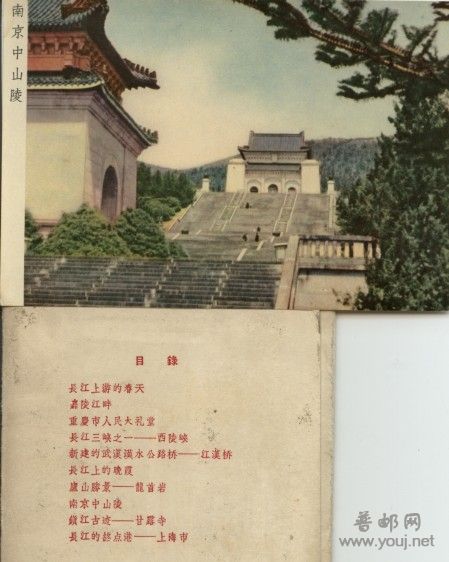 南京中山陵
目錄
長江上游的春天
嘉陵江畔
重慶市人民大礼堂
長江三峽之一——西陵峽
新建的武漢漢水公路桥——江漢桥
長江上的晚霞
廬山勝景——龍首岩
南京中山陵
鎮江古迹——甘露寺
長江的終点港——上海市
普邮网
www.youj.net